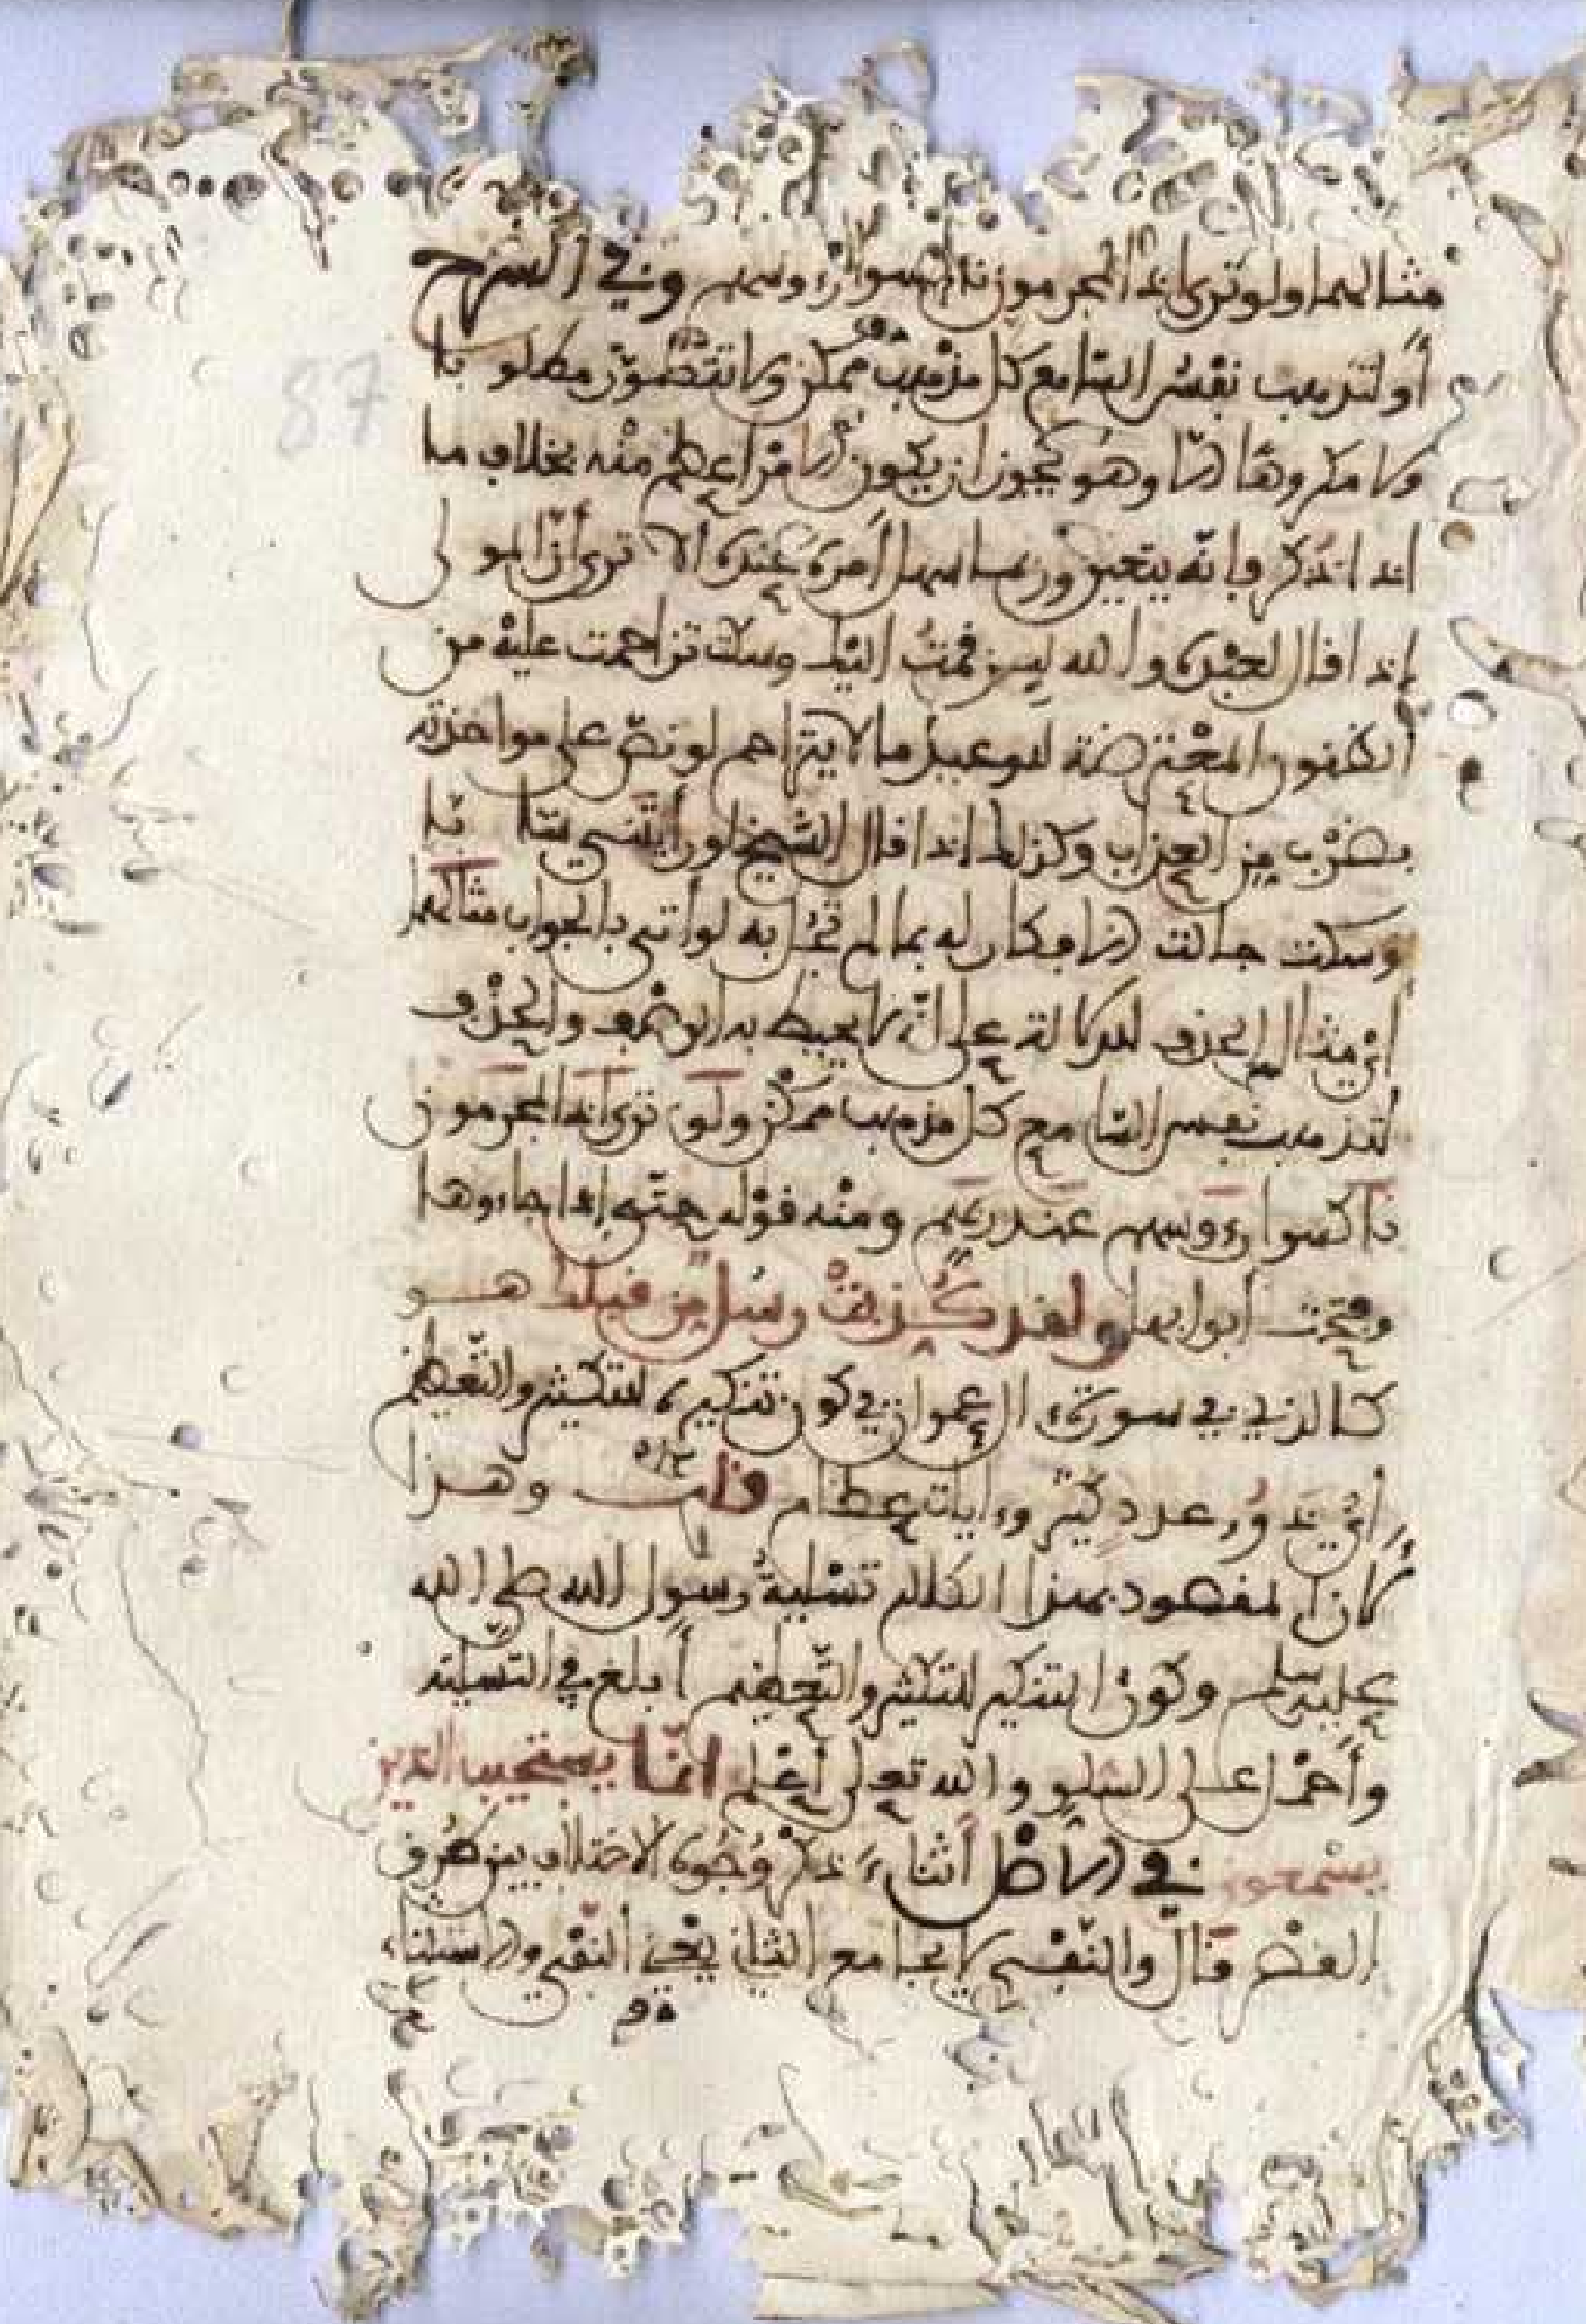 مثالهما ولو ترى إذ المجرمون ناكسوا رءوسهم وفي الشرح
أو لتذهب نفس السامع كل مذهب ممكن ولا يتصور مطلوبا
ولا مكروها إلا وهو يجوز أن يكون الأمر أعظم منه بخلاف ما
إذا ذكر فإنه يتعين وربما سهل أمره عنده ألا ترى أن المولى
إذا قال لعبده والله لين قمت إليك وسكت تزاحمت عليه من
الظنون المعترضة للوعيد ما لا يتزاحم لو نص على مواخذته
بضرب من العذاب وكذلك إذا قال الشيخ لو رأيتني شابا
وسكت جالت الأفكار له بما لم تجل به لو أتى بالجواب مثالهما
أي مثال الحذف للدلالة على أنه لا يحيط به الوصف والحذف
لتذهب نفس السامع كل مذهب ممكن ولو ترى إذ المجرمون
ناكسوا رءوسهم عند ربهم ومنه قوله حتى إذا جاءوها
وفتحت أبوابها ولقد كذبت رسل من قبلك هو
كالذي في سورة ءال عمران في كون تنكيره للتكثير والتعظيم
أي ذوو عدد كثير وءايات عظام قلت وهذا
لأن المقصود بهذا الكلام تسلية رسول الله صلى الله
عليه وسلم وكون التنكير للتكثير والتعظيم أبلغ في التسلية
وأحمل على السلو والله تعلى أعلم إنما يستجيب الذين
يسمعون في الأصل أثناء ذكر وجوه الاختلاف بين طرق
القصر قال والنفي لا يجامع الثاني يعني النفي والاستثناء
87